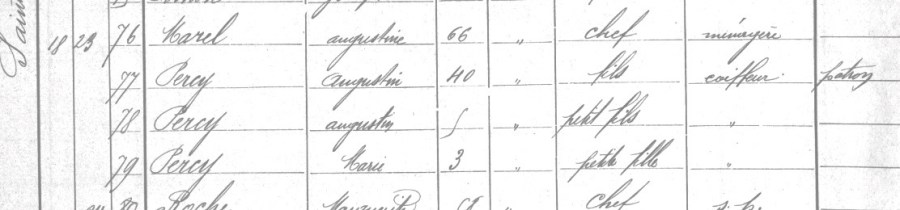 18 23 76 Marel augustine 66 " chef ménagère
77 Percy augustin 40 " fils coiffeur patron
78 Percy augustin 5 " petit fils "
79 Percy Marie 3 " petite fille "
80 Roche Marguerite chef s.p.